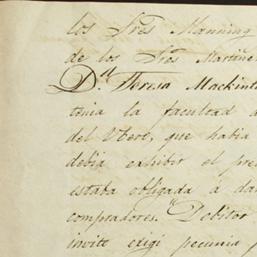 los Sres Manning
de los Sres Martine
Dª Teresa Mackint
tenia la facultad d
del Ubert, que habia
debia exhibir el pre
estaba obligada a da
compradores. "Debitor
invite exigi pecunia